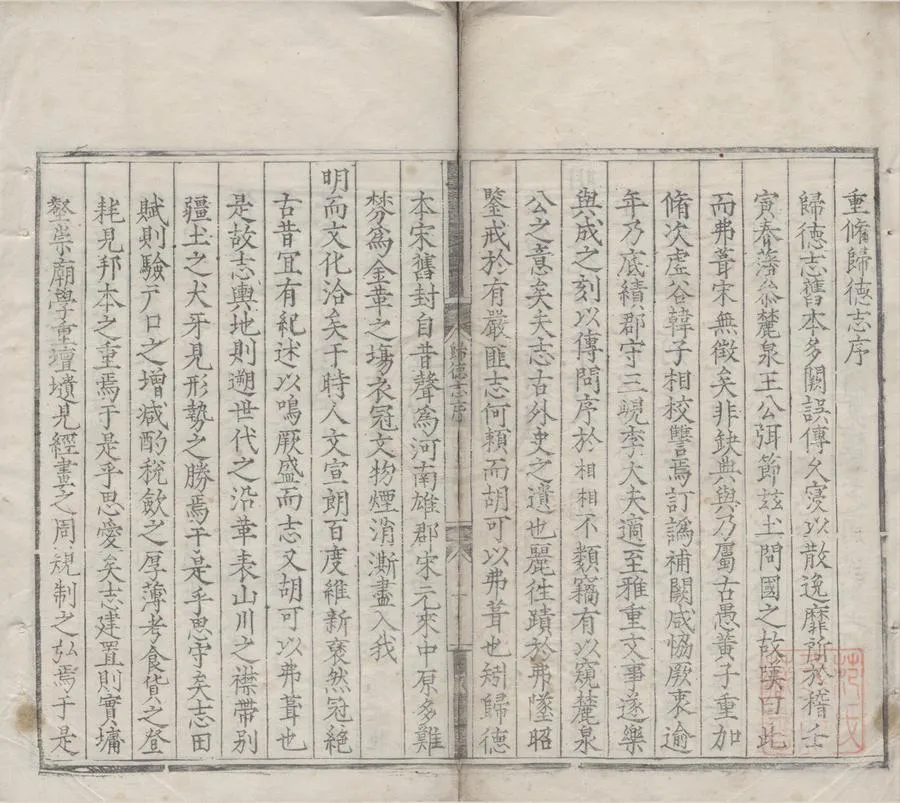 重脩歸德志序
歸德志舊本多闕誤傳久寖以散逸靡所於稽壬
寅春藩叅麓泉王公弭節茲土問國之故嘆曰此
而弗葺宋無徵矣非缺典與乃屬古愚黃子重加
脩次虛谷韓子相校讐焉訂譌補闕咸恊厥衷逾
年乃底績郡守三峴李大夫適至雅重文事遂樂
與成之刻以傳問序於相相不纇竊有以窺麓泉
公之意矣夫志古外史之遺也麗徃蹟於弗墜昭
鑒戒於有嚴匪志何頼而胡可以弗葺也矧歸德
歸德志序
本宋舊封自昔聲爲河南雄郡宋元來中原多難
棼爲金革之塲衣冠文物煙消澌盡入我
明而文化洽矣于時人文宣朗百度維新裒然冠絕
古昔宜有紀述以鳴厥盛而志又胡可以弗葺也
是故志輿地則遡世代之沿革表山川之襟帶别
疆土之犬牙見形勢之勝焉于是乎思守矣志田
賦則驗戸口之增減酌稅歛之厚薄考食貨之登
耗見邦本之重焉于是乎思愛矣志建置則實墉
壑崇廟學重壇墳見經畫之周規制之弘焉于是